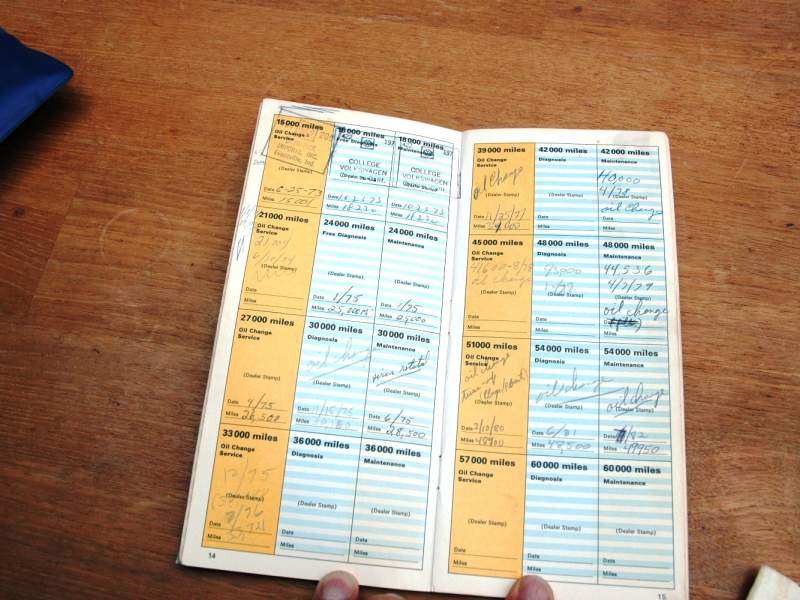 15000 miles
Oil Change
Service
(Dealer Stamp)
Date 6-25-73
Miles 15001
18000 miles
Free Diagnosis
COLLEGE
VOLKSWAGEN
Date 10 22 73
Miles 18220
18000 miles
Maintenance
COLLEGE
VOLKSWAGEN
Date 10 22 73
Miles 18220
21000 miles
Oil Change
Service
(Dealer Stamp)
Date
Miles
24000 miles
Free Diagnosis
(Dealer Stamp)
Date 1/75
Miles 25,000
24000 miles
Maintenance
(Dealer Stamp)
Date 1/75
Miles 25,000
27000 miles
Oil Change
Service
(Dealer Stamp)
Date 4/75
Miles 26,500
30000 miles
Diagnosis
oil change
(Dealer Stamp)
Date 11/15/75
Miles
30000 miles
Maintenance
tires rotated
(Dealer Stamp)
Date 6/75
Miles 28,500
33000 miles
Oil Change
Service
12/75
(Dealer Stamp)
Date
Miles
36000 miles
Diagnosis
(Dealer Stamp)
Date
Miles
36000 miles
Maintenance
(Dealer Stamp)
Date
Miles
14
39000 miles
Oil Change
Service
oil change
(Dealer Stamp)
Date
Miles
42000 miles
Diagnosis
(Dealer Stamp)
Date
Miles
42000 miles
Maintenance
40,000
4/78
(Dealer Stamp)
oil change
Date
Miles
45000 miles
Oil Change
Service
oil change
(Dealer Stamp)
Date
Miles
48000 miles
Diagnosis
(Dealer Stamp)
Date
Miles
48000 miles
Maintenance
44,536
4/7/79
(Dealer Stamp)
oil change
Date
Miles
51000 miles
Oil Change
Service
oil change
tune-up
(Dealer Stamp)
Date 2/10/80
Miles
54000 miles
Diagnosis
oil change
(Dealer Stamp)
Date 6/81
Miles 48,500
54000 miles
Maintenance
oil change
(Dealer Stamp)
Date
Miles 49950
57000 miles
Oil Change
Service
(Dealer Stamp)
Date
Miles
60000 miles
Diagnosis
(Dealer Stamp)
Date
Miles
60000 miles
Maintenance
(Dealer Stamp)
Date
Miles
15